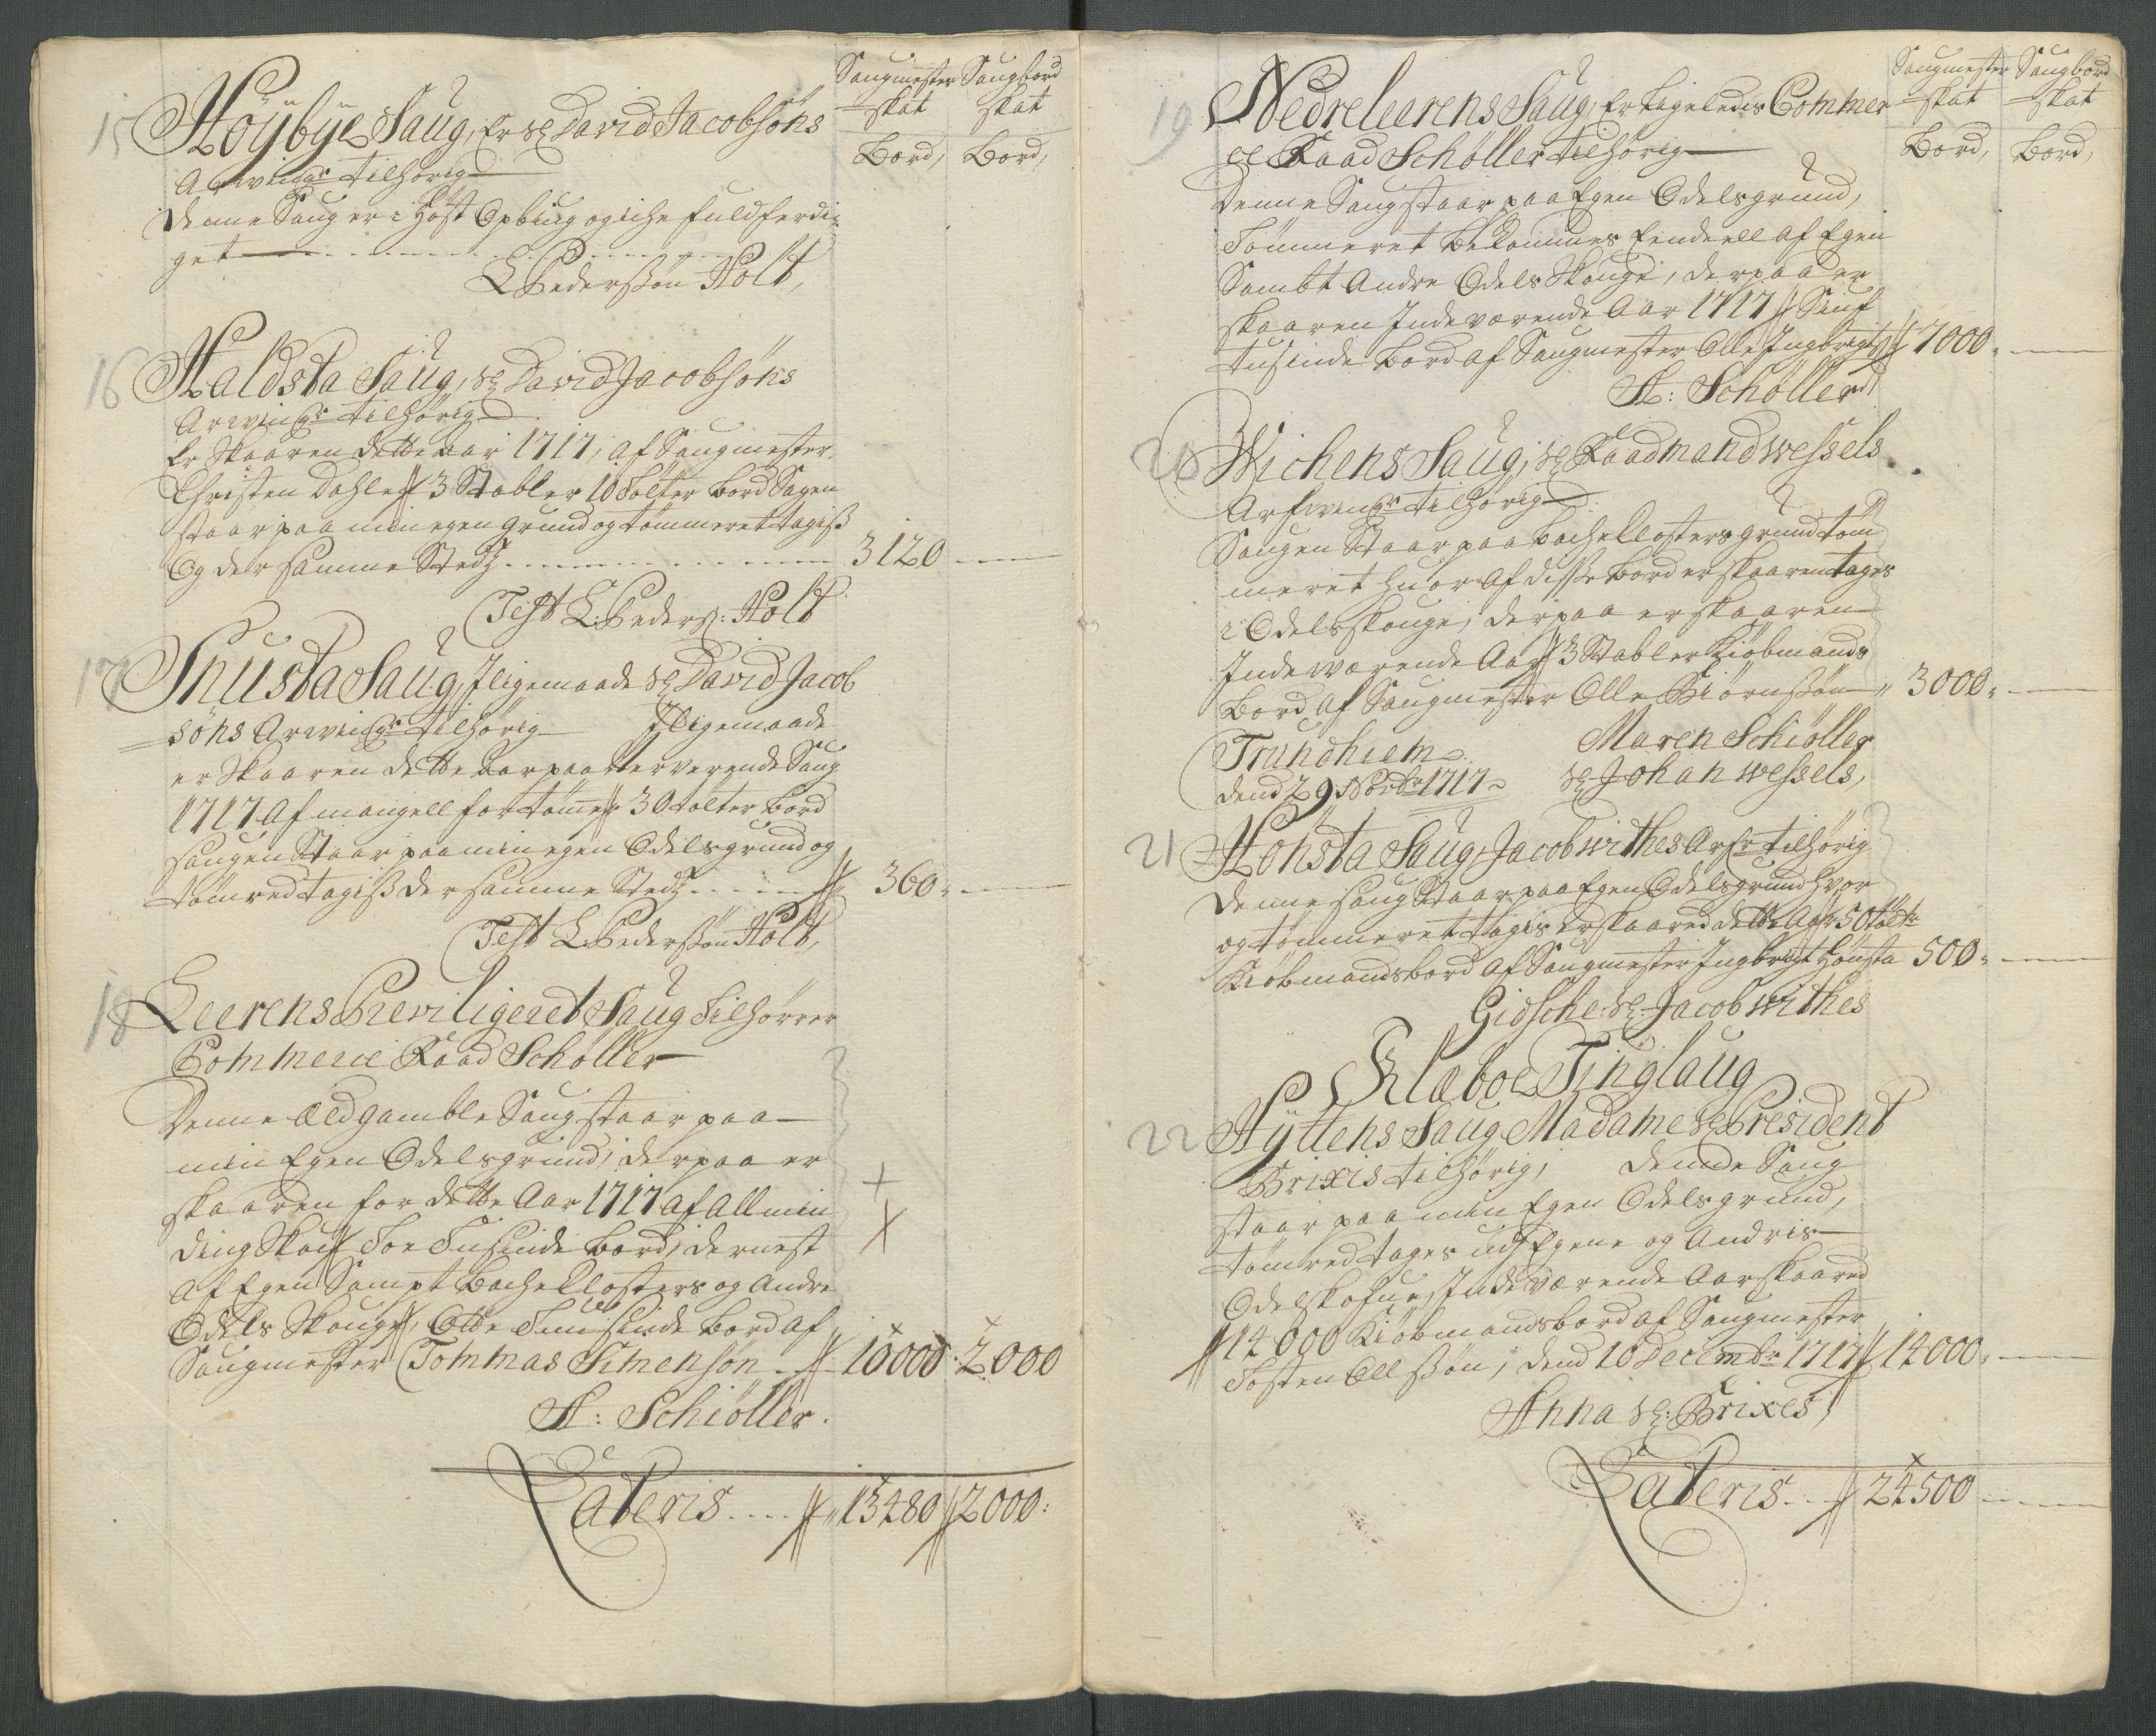 Saugmester Saugbord
skat skat
Bord, Bord,
15
Höÿbÿe Saug, Er Sl David Jacobsöns
Arwings tilhörig
denne Saug er i Höst Opbiug og iche fuldferdi-
get
L Pederssøn Holt,
16
Haldsta Saug, Sl David Jacobsöns
Arwings tilhörig
Er Skaaren dette aar 1717, af Saugmester
Christen Dahle 3 Stabler 10 Tölter bord Sagen
staar paa min egen grund og tömmeret tagiss
Og der samme Stedz 3120
Test L: Peders: Holt
17
Snusta Saug, Jligemaade Sl David Jacob
söns Arwings tilhörig Jligemaade
er Skaaren dette Aar paa Nerverende Saug
1717 Af mangell for tömer 30 tolter bord
saugen Staar paa min egen Odelsgrund og
tömred tagiss der samme Stedz 360
Test L: Pederssøn Holt,
18
Leerens Previligeret Saug Tilhörrer
Commerce Raad Schøller
Denne Eldgamble Saug staar paa
min Egen Odelsgrund, der paa er
skaaren for dette Aar 1717 af Allmin
ding Skou Toe Tusinde bord, dernest
Af Egen Sampt bache Closters og Andre
Odels Skouge, Otte Tuusinde bord af
Saugmester Tommas Simensøn 10000 2000
A: Schiøller.
Lateris 13480 2000:
Saugmester Saugbord
skat skat
Bord, Bord,
19
Nedre leerens Saug, Er ligeledis Commer
ce Raad Schøller tilhörig
Denne Saug staar paa Egen Odelsgrund,
Tömmeret bekommes Eendeell af Egen
Sambt Andre Odels Skouge, der paa er
skaaren Inde værende Aar 1717 Siuf
tusinde bord af Saugmester Olle Ingbrigts 7000
A: Schøller
20
Wichens Saug, Sl Raadmand Wessels
Arfwings tilhörig
Saugen Staar paa bache Closters grund töm
meret huor af disse bord er skaaren tages
i Odelsskouge, der paa er skaaren
Inde værende Aar 3 Stabler Kiöbmands
bord af Saugmester Olle Biörnssøn 3000
Trundhiem Maren Schiøller
dend 29 Novbr 1717 Sl Johan Wessels,
21
Hönsta Saug, Jacob Withes Arfr tilhörig
Denne saug Staar paa Egen Odelsgrund hvor
og tömmeret tages er skaared dette Aar 50 tölter
Kiöbmandsbord Af Saugmester Ingbrigt Hönsta 500
Gidsche Sl: Jacob Withes
Klæboe Tinglaug
22
Hÿttens Saug Madame Sl President
Brixis tilhörig, denne Saug
staar paa min Egen Odelsgrund,
tömred tages udj Egene og Andris
Odelskofue, Inde værende Aar skaared
14000 Kiöbmandsbord af Saugmester
Tosten Ollssøn, dend 10 Decembr 1717 14000
Anna Sl: Brixes
Lateris 24500